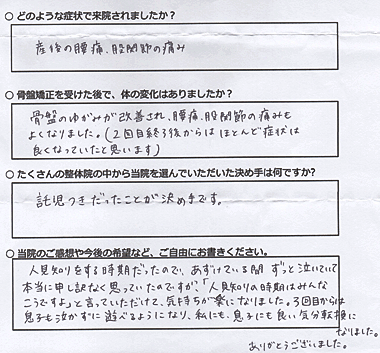 ○ どのような症状で来院されましたか？
産後の腰痛、股関節の痛み
○ 骨盤矯正を受けた後で、体の変化はありましたか？
骨盤のゆがみが改善され、腰痛、股関節の痛みも
よくなりました。(2回目終了後からは ほとんど症状は
良くなっていたと思います)
○ たくさんの整体院の中から当院を選んでいただいた決め手は何ですか？
託児つきだったことが決め手です。
○ 当院のご感想や今後の希望など、ご自由にお書きください。
人見知りをする時期だったので、あずけている間 ずっと泣いていて
本当に申し訳なく思っていたのですが、「人見知りの時期はみんな
こうですよ」と言っていただけて、気持ちが楽になりました。3回目からは
息子も泣かずに遊べるようになり、私にも、息子にも良い気分転換に
なりました。
ありがとうございました。